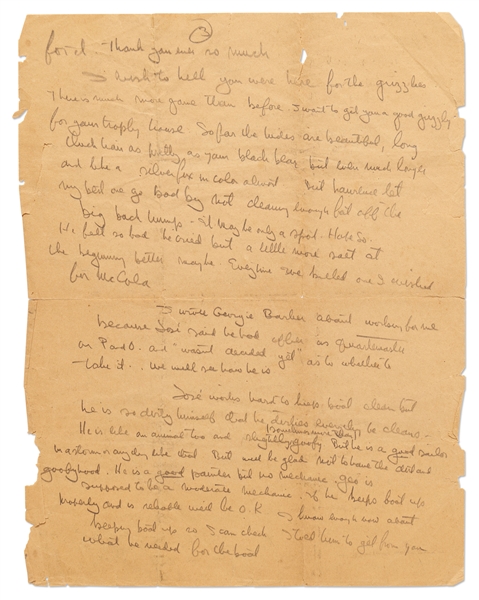 3
ford. Thank you ever so much
I wish to hell you were here for the grizzlies
There is much more game than before. I want to get you a good grizzly
for your trophy house. So far the hides are beautiful, long
thick hair as pretty as your black bear but even much longer
and like a silver fox in color almost. But Lawrence let
my bed we go bad by not cleaning enough fat off the
big back hump - it may be only a spot. Hope so.
He felt so bad he cried but a little more salt at
the beginning better maybe. Everytime we killed one I wished
for McCoba
I wrote Georgie Barker about working for me
because José said he had offer as quartermaster
on PandO. and "wasn't decided yet" as to whether to
take it... we will see how he is
José works hard to keep boat clean but
he is so dirty himself that he dirties everything he cleans.
He is like an animal too and slightly goofy But he is a good sailor
in a storm or any day like that. But will be glad not to have the dirt and
goofyhood. He is a good painter but no mechanic. geo is
supposed to be a moderate mechanic. If he keeps boat up
properly and is reliable we'd be O.K. I know enough now about
keeping boat up so I can check. I told him to get from you
what he needed for the boat